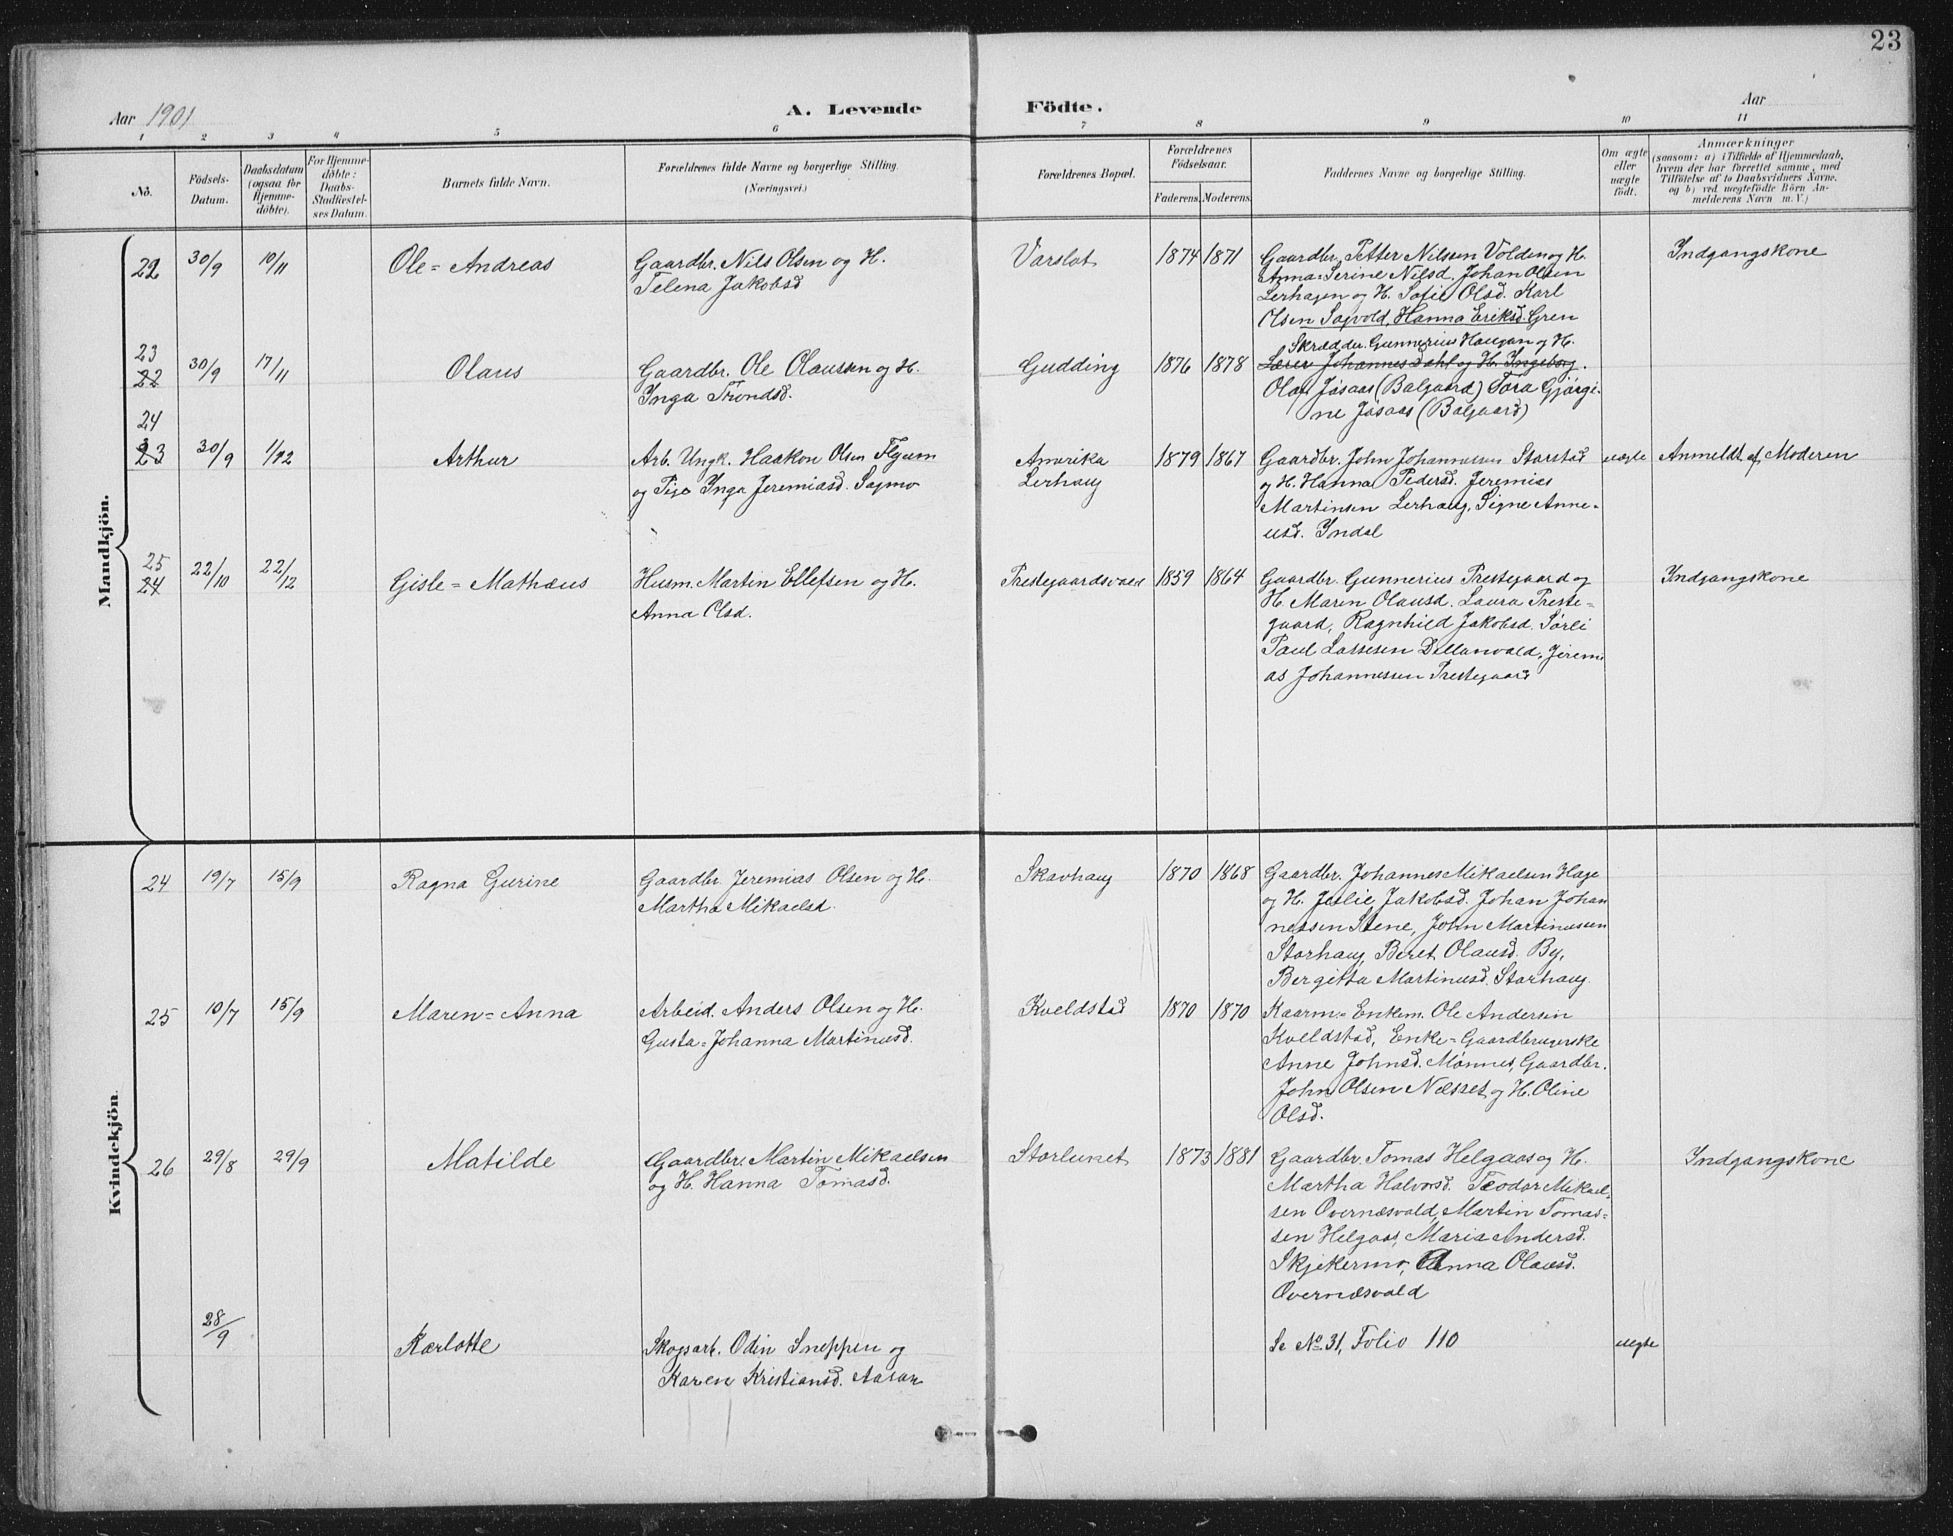 23
Aar 1901
A. Levende Födte.
Aar
1 2 3 4 5 6 7 8 9 10 11
No.
Födsels-
Datum.
Daabsdatum
(ogsaa for
Hjemme-
döbte).
For Hjemme-
döbte:
Daabs-
Stadfæstel-
ses Datum.
Barnets fulde Navn.
Forældrenes fulde Navne og borgerlige Stilling.
(Næringsvei.)
Forældrenes Bopæl.
Forældrenes
Födselsaar.
Faderens. Moderens.
Faddernes Navne og borgerlige Stilling.
Om ægte
eller
uægte
födt.
Anmærkninger
(saasom: a) i Tilfælde af Hjemmedaab,
hvem der har forrettet samme, med
Tilföielse af to Daabsvidners Navne,
og b) ved uægtefödte Börn An-
melderens Navn m. V.)
Mandkjön.
22 30/9 10/11
Ole = Andreas
Gaardbr. Nils Olsen og H.
Telena Jakobsd
Varslot
1874 1871
Gaardbr. Petter Nilsen Volden og H.
Anna = Serine Nilsd, Johan Olsen
Lerhagen og H. Sofie Olsd. Karl
Olsen Sagvold, Hanna Eriksd. Gren
Indgangskone
23
22 30/9 17/11
Olaus
Gaardbr. Ole Olaussen og H.
Inga Trondsd.
Gudding
1876 1878
Skrædder. Gunnerius Haugan og H.
Lærer Johannes Dahl og H. Ingeborg.
Olaf Jøsaas (Balgaard) Tora Gjørgi-
ne Jøsaas (Balgaard)
24
23 30/9 1/12
Arthur
Arb. Ungk. Haakon Olsen Flyum
og Pige Inga Jeremiasd. Sagmo
Amerika
Lerhaug
1879 1867
Gaardbr. John Johannessen Storstad
og H. Hanna Pedersd. Jeremias
Martinsen Lerhaug, Signe Anne-
usd. Indal
uægte
Anmeldt af Moderen
25
24 22/10 22/12
Gisle = Mathæus
Husm. Martin Ellefsen og H.
Anna Olsd.
Prestegaardsvald
1859 1864
Gaardbr. Gunnerius Prestegaard og
H. Maren Olausd. Laura Preste=
gaard, Ragnhild Jakobsd. Sørli
Paul Lassesen Dillanvald, Jeremi
as Johannessen Prestegaard
Indgangskone
Kvindekjön.
24 19/7 15/9
Ragna Gurine
Gaardbr. Jeremias Olsen og H.
Martha Mikaelsd.
Skavhaug
1870 1868
Gaardbr. Johannes Mikaelsen Hage
og H. Julie Jakobsd. Johan Johan
nessen Stene, John Martinussen
Storhaug, Beret Olausd. By,
Bergitta Martinusd. Storhaug
25 10/7 15/9
Maren = Anna
Arbeid. Anders Olsen og H.
Gusta = Johanna Martinusd.
Kveldstad
1870 1870
Kaarm = Enkem. Ole Andersen
Kveldstad, Enke = Gaardbrugerske
Anne Johnsd. Mønnes, Gaardbr.
John Olsen Næsset og H. Oline
Olsd.
26 29/8 29/9
Matilde
Gaardbr. Martin Mikaelsen
og H. Hanna Tomasd.
Storlunet
1873 1881
Gaardbr. Tomas Helgaas og H.
Martha Halvorsd. Teodor Mikael-
sen Overnæsvald, Martin Tomas=
sen Helgaas, Maria Andersd.
Skjekermo, Anna Olausd.
Overnæsvald
Indgangskone
28/9
Karlotte
Skogsarb. Odin Sneppen og
Karen Kristiansd. Aasan
Se No 31, Folio 110
uægte